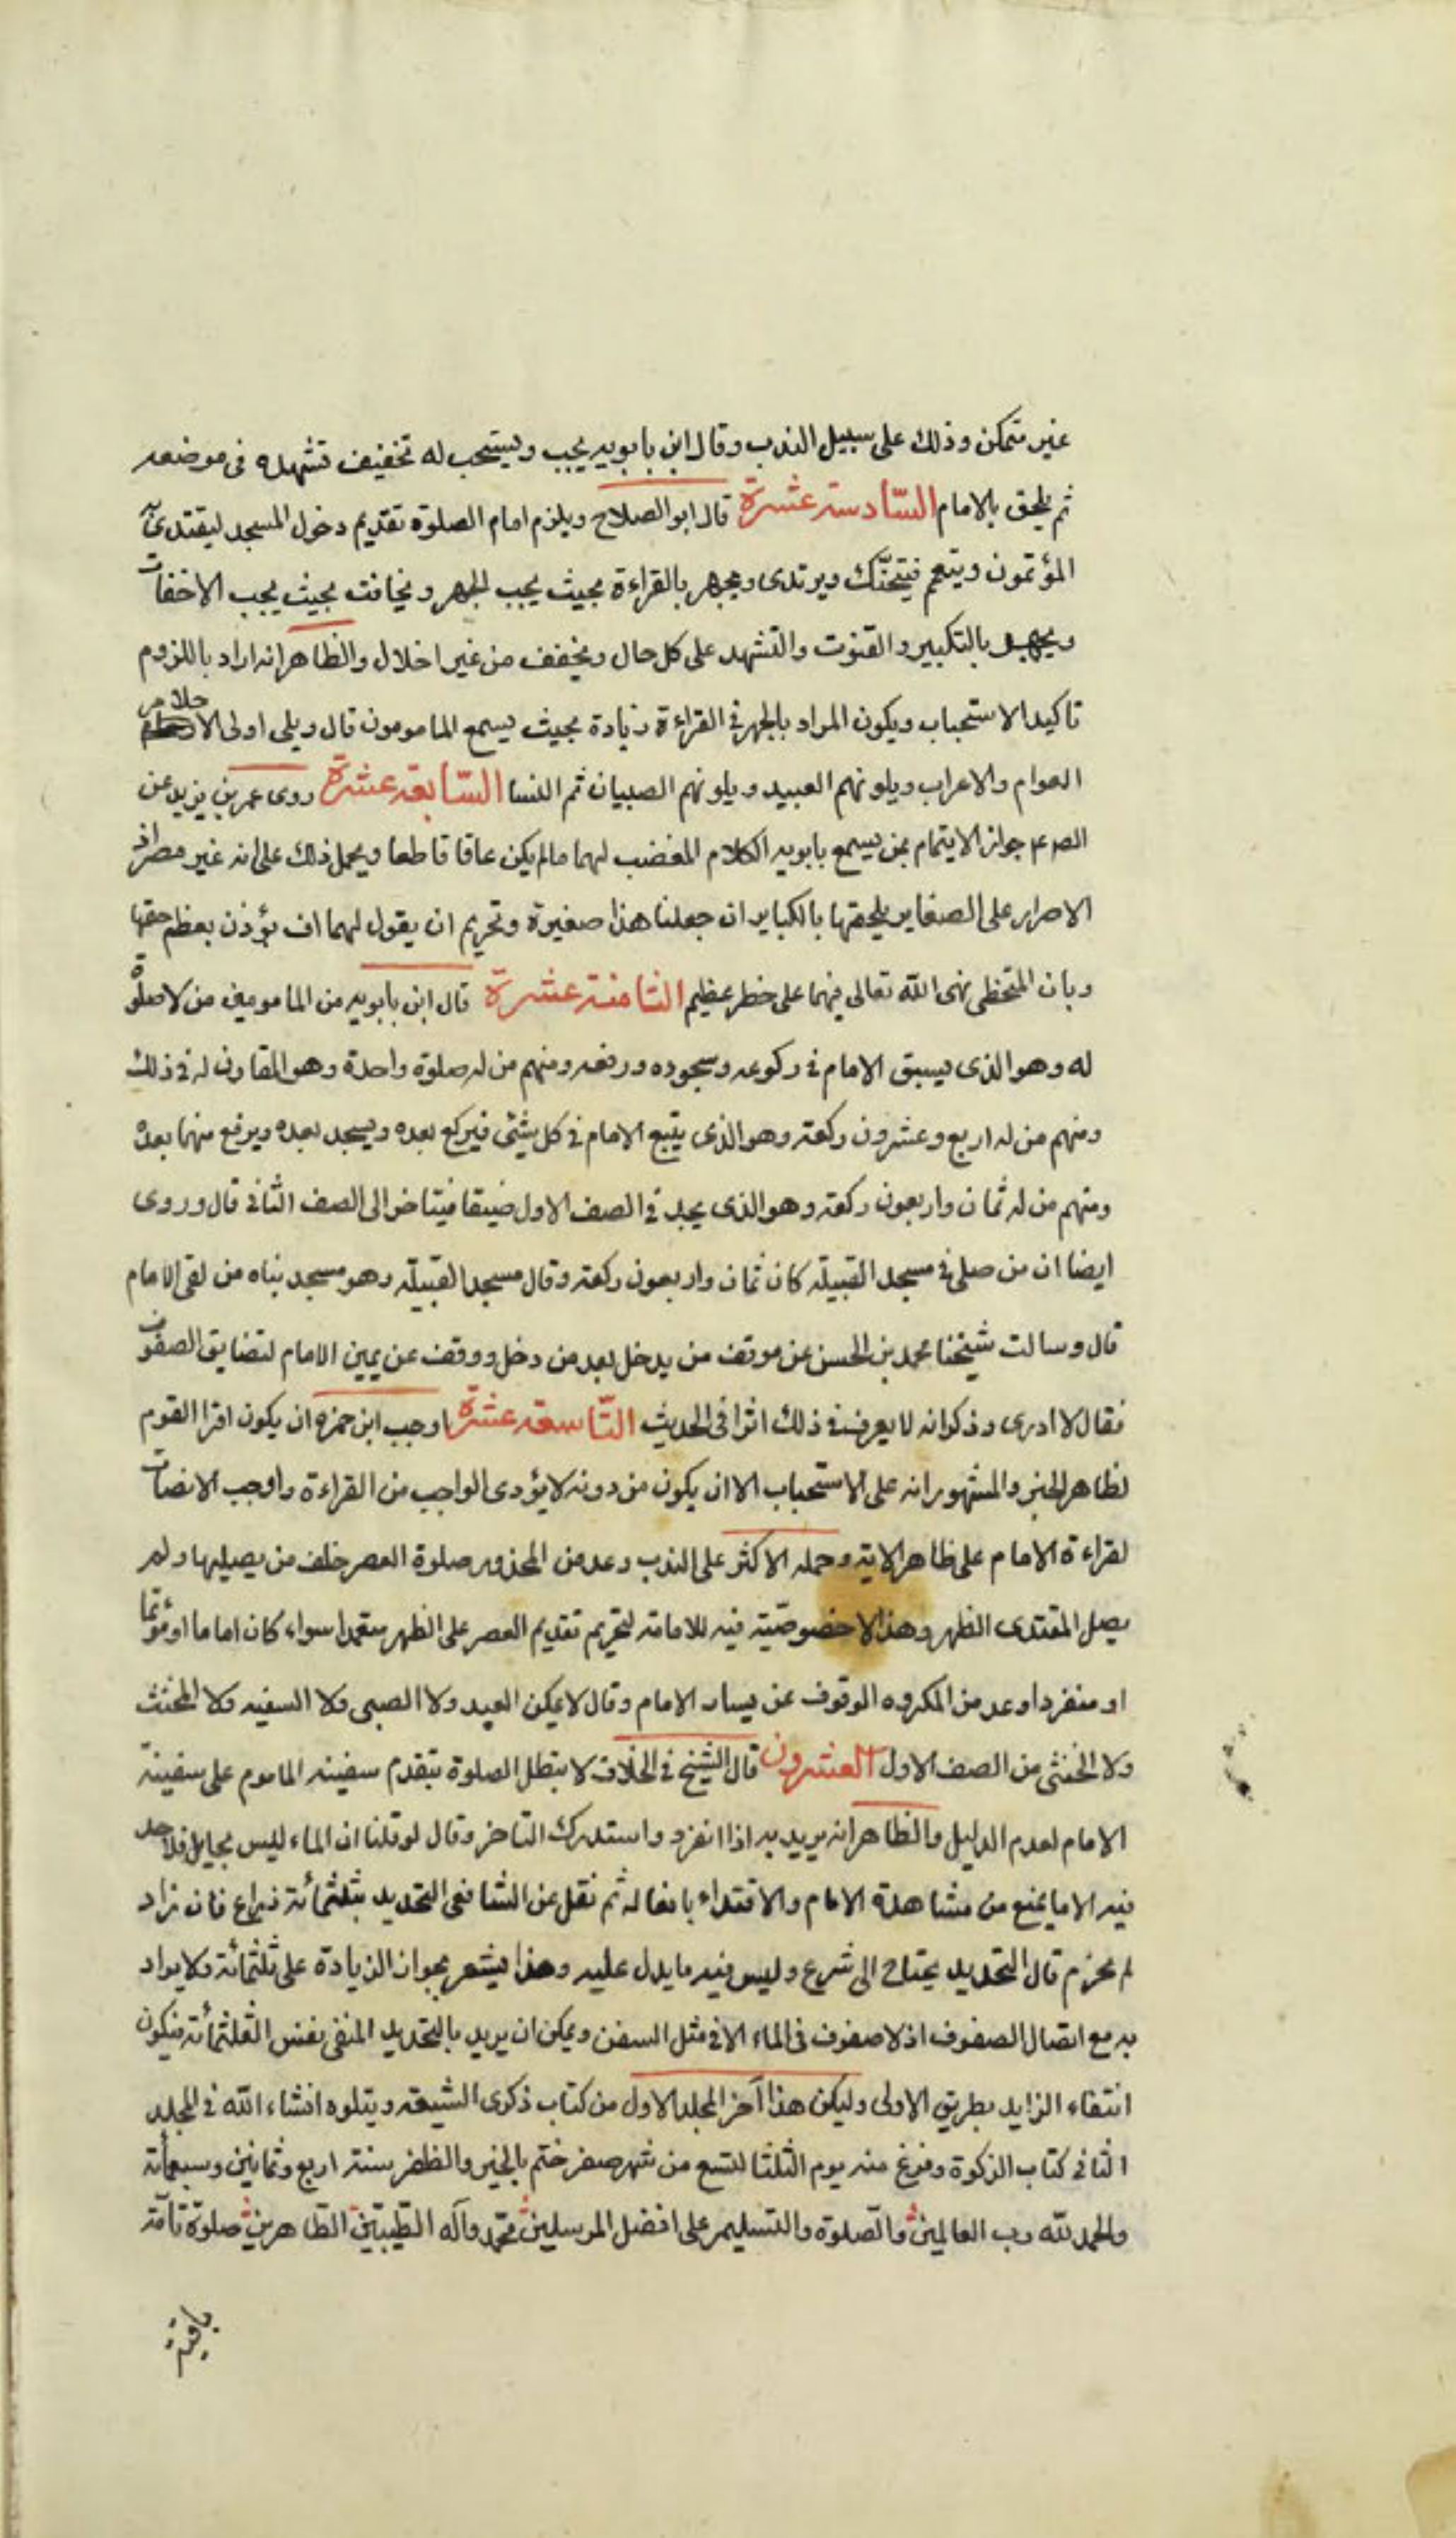 غير متمكن وذلك على سبيل الندب وقال ابن بابويه يجب ويستحب له تخفيف تشهده فى موضعه
ثم يلحق بالامام السّادسته عشرة قال ابو الصلاح ويلزم امام الصلوة تقديم دخول المسجد ليقتدى به
المؤتمون ويتعمم فيتحنّك ويرتدى ويجهر بالقراءة بحيث يجب الجهر ويخافت بحيث يجب الاخفات
ويجهر بالتكبير والقنوت والتشهد على كل حال ويخفف من غير اخلال والظاهر انه اراد باللزوم
تاكيد الاستحباب ويكون المراد بالجهر فى القراءة زيادة بحيث يسمع المامومون قال ويلى اولى الاحلام
العوام والاعراب ويلونهم العبيد ويلونهم الصبيان ثم النسا السّابعه عشرة روى عمر بن يزيد عن
الصم جواز الايتمام بمن يسمع بابويه الكلام المغضب لهما مالم يكن عاقا قاطعا ويحمل ذلك على انه غير مصر اذ
الاصرار على الصغاير يلحقها بالكباير ان جعلنا هذا صغيرة وتحريم ان يقول لهما اف يؤذن بعظم حقها
وبان المتخطى نهى الله تعالى فيهما على خطر عظيم الثامنه عشرة قال ابن بابويه من المامومين من لا صلوة
له وهو الذى يسبق الامام فى ركوعه وسجوده ورفعه ومنهم من له صلوة واحدة وهو المقارن له فى ذلك
ومنهم من له اربع وعشرون ركعته وهو الذى يتبع الامام فى كل شئى فيركع بعده ويسجد بعده ويرفع منهما بعده
ومنهم من له ثمان واربعون ركعته وهو الذى يجد فى الصف الاول ضيقا فيتاخر الى الصف الثانى قال وروى
ايضا ان من صلى فى مسجد القبيله كان ثمان واربعون ركعته وقال مسجد القبيله وهو مسجد بناه من لقى الامام
قال وسالت شيخنا محمد بن الحسن عن موقف من يدخل بعد من دخل ووقف عن يمين الامام لتضايق الصفوف
فقال لا ادرى وذكر انه لا يعرف فى ذلك اثرا فى الحديث التّاسعه عشرة اوجب ابن حمزه ان يكون اقرا القوم
لظاهر الخبر والمشهور انه على الاستحباب الا ان يكون من دونه لا يؤدى الواجب من القراءة واوجب الانصات
لقراءة الامام على ظاهر الايته وحمله الاكثر على الندب وعد من المحذور صلوة العصر خلف من يصليها ولم
يصل المقتدى الظهر وهذا لا خصوصيّته فيه للامامته لتحريم تقديم العصر على الظهر متعمدا سواء كان اماما او مؤتما
او منفردا وعد من المكروه الوقوف عن يسار الامام وقال لا يمكن العبد ولا الصبى ولا السفيه ولا المخنث
ولا الخنثى من الصف الاول العشرون قال الشيخ فى الخلاف لا تبطل الصلوة بتقدم سفينه الماموم على سفينة
الامام لعدم الدليل والظاهر انه يريد به اذا انفرد واستدرك التاخر وقال لو قلنا ان الماء ليس بحايل فلا حد
فيه الا ما يمنع من مشاهدة الامام والاقتداء بافعاله ثم نقل عن الشافعى التحديد بثلثمائة ذراع فان زاد
لم يجزم قال التحديد يحتاج الى شرع وليس فيه ما يدل عليه وهذا يشعر بجواز الزيادة على ثلثمائة ولا يراد
به مع اتصال الصفوف اذ لا صفوف فى الماء الا فى مثل السفن ويمكن ان يريد بالتحديد المنفى نفس الثلثمأته فيكون
انتفاء الزايد بطريق الاولى وليكن هذا آخر المجلد الاول من كتاب ذكرى الشيعه ويتلوه انشاء الله فى المجلد
الثانى كتاب الزكوة وفرغ منه يوم الثلثا لتسع من شهر صفر ختم بالخير والظفر سنته اربع وثمانين وسبعمأته
والحمد لله رب العالمين والصّلوة والتسليم على افضل المرسلين محمّد وآله الطّيبيّن الطّاهرين صلوة تآمّته
باقية